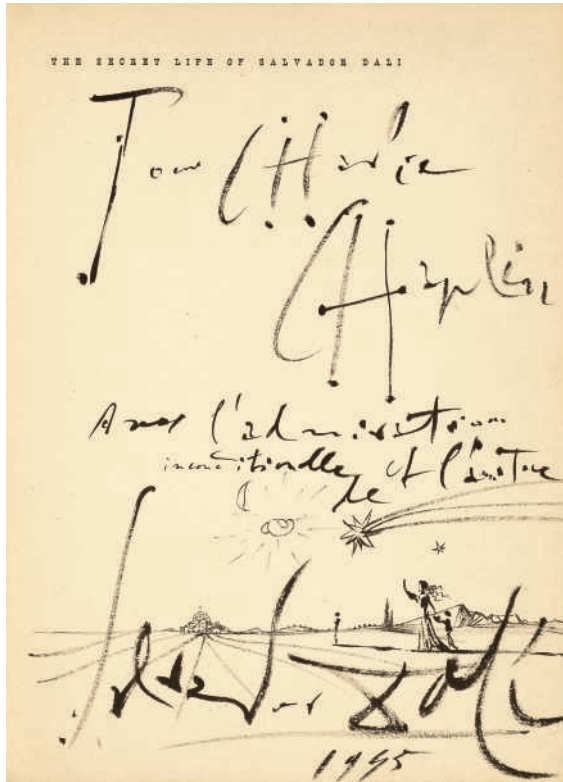 THE SECRET LIFE OF SALVADOR DALI
Pour Charlie
Chaplin
Avec l'admiration
inconditionelle et l'amitie
de
Salvador Dalí
1955